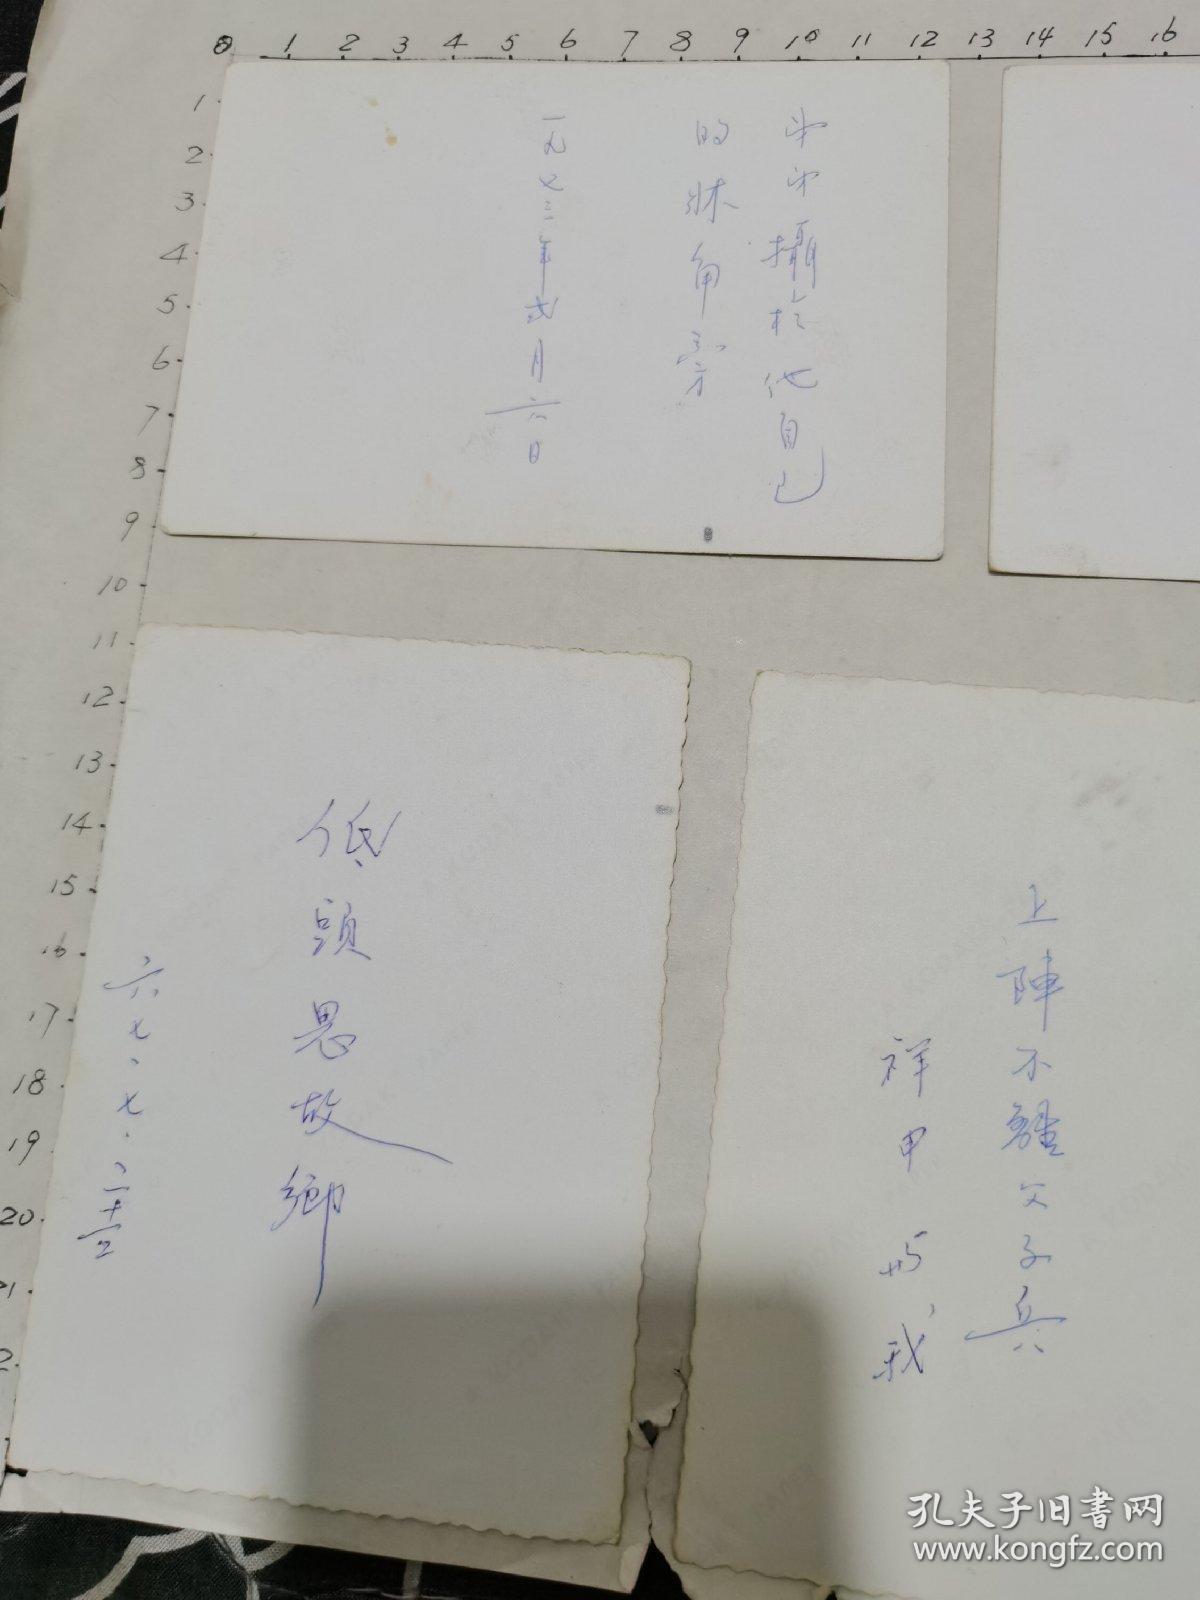 0 1 2 3 4 5 6 7 8 9 10 11 12 13 14 15 16
1
2
3
4
5
6
7
8
9
10
11
12
13
14
15
16
17
18
19
20
攝於他自己
的牀角旁
一九七三年弍月六日
低頭思故鄉
六七、七、二十六
上陣不離父子兵
祥甲 与我
孔夫子旧书网
www.kongfz.com